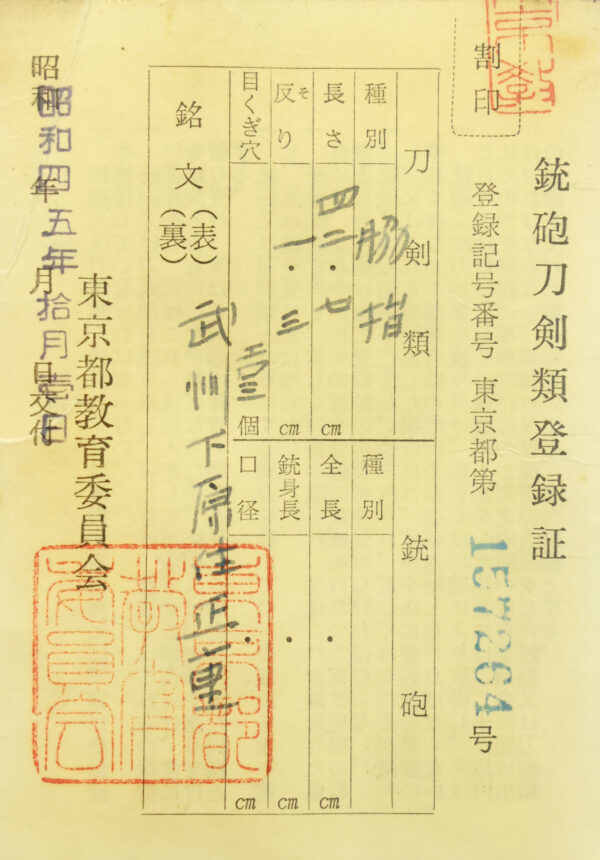 割印
銃砲刀剣類登録証
登録記号番号 東京都第 157264 号
刀剣類
種別 脇指
長さ 四二・七 cm
反り そ 一・三 cm
目くぎ穴 壱 個
銃砲
種別
全長 ・ cm
銃身長 ・ cm
口径 cm
銘文 (表) 武州下原住正重
(裏)
東京都教育委員会
昭和 年 月 日交付
昭和四五年拾月壱日
東京都教育委員会